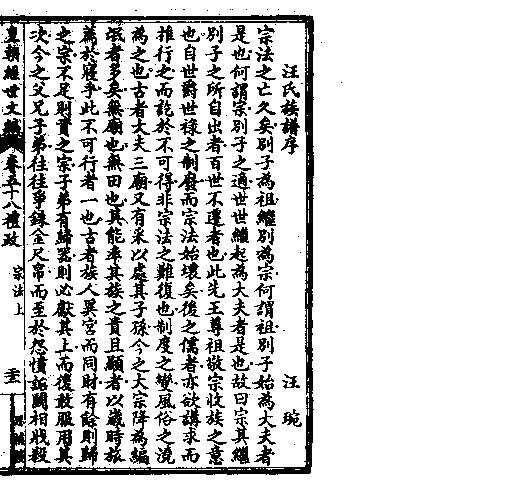 汪氏族譜序 汪琬
宗法之亡久矣別子為祖繼別為宗何謂祖別子始為大夫者
是也何謂宗別子之適世世繼起為大夫者是也故曰宗其繼
別子之所自出者百世不遷者也此先王尊祖敬宗收族之意
也自世爵世祿之制廢而宗法始壞矣後之儒者亦欲講求而
推行之而訖於不可得非宗法之難復也制度之變風俗之澆
為之也古者大夫三廟又有采以處其子孫今之大宗降為編
氓者多矣無廟也無田也其能率其族之貴且顯者以歲時旅
薦於寢乎此不可行者一也古者族人異宮而同財有餘則歸
之宗不足則資之宗子弟有歸器則必獻其上而復敢服用其
次今之父兄子弟往往爭錙金尺帛而至於怨憤詬鬭相戕殺
皇朝經世文編 卷五十八禮政 宗法上